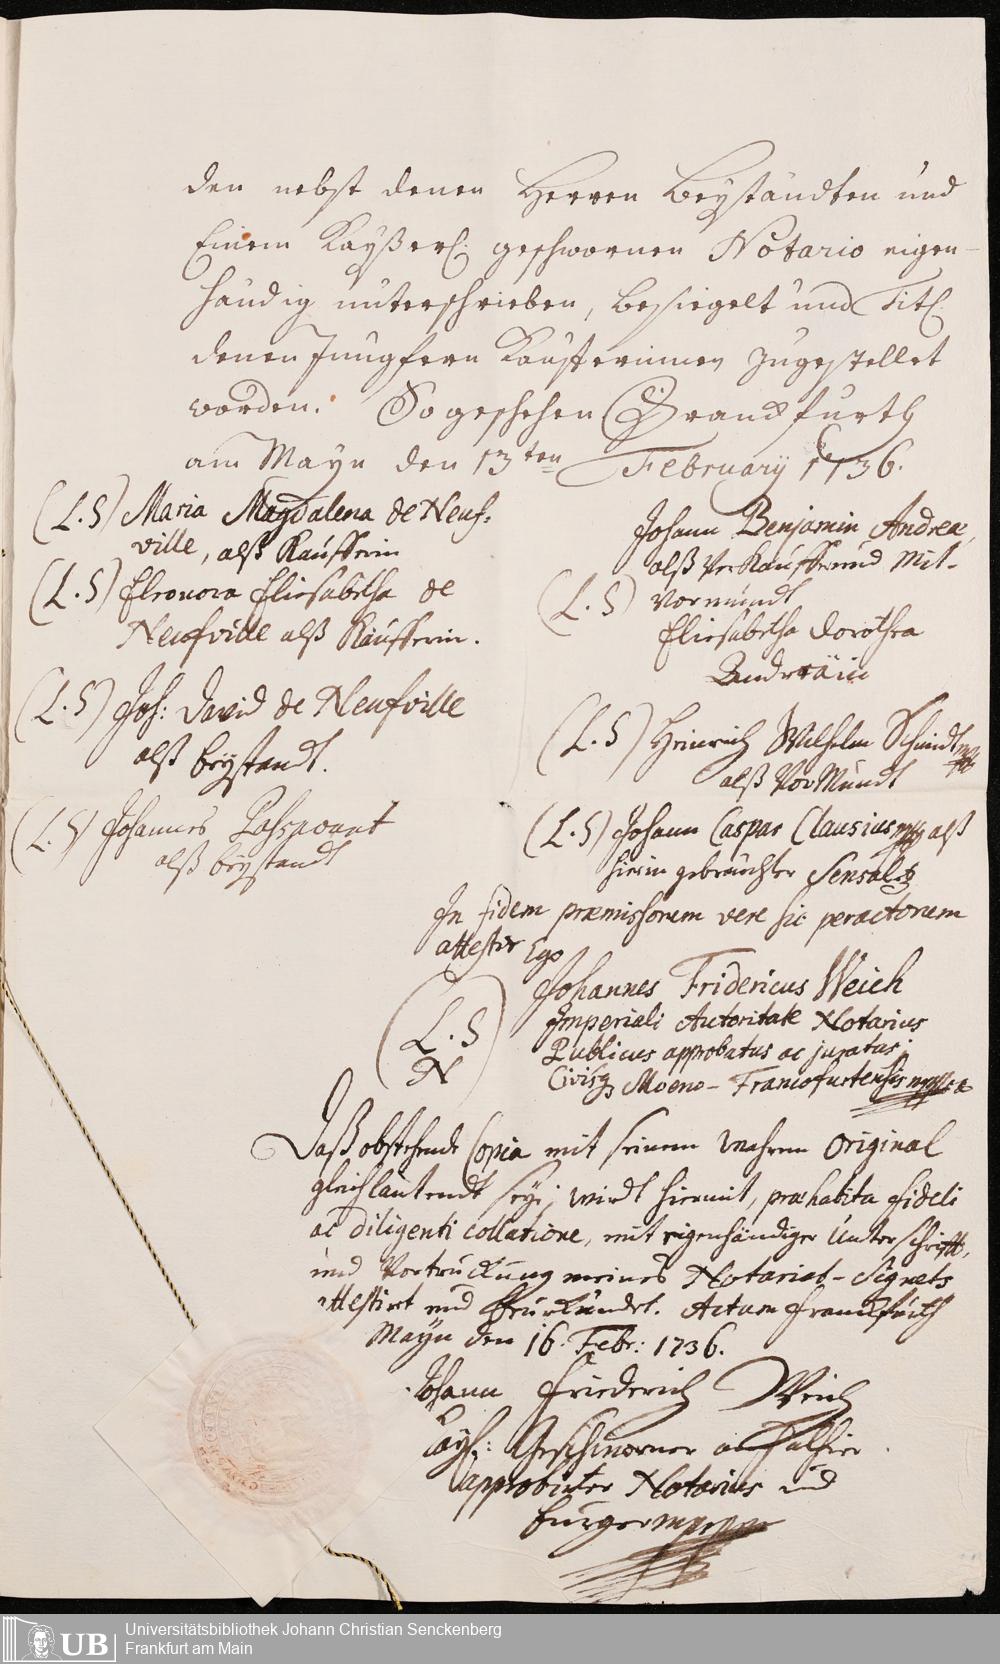 den nebst denen Herren Beyständten und
Einem Kayßerl: geschwornen Notario eigen-
händig unterschrieben, besiegelt und Titl.
denen Jungfern Kaufferinnen zugestellet
worden. So geschehen Franckfurth
am Mayn den 13ten February 1736.
(L.S) Maria Magdalena de Neuf-
ville, alß Kaufferin
(L.S) Eleonora Eliesabetha de
Neufville alß Käufferin.
(L.S) Joh: David de Neufville
alß beystandt.
(L.S) Johannes Passavant
alß beystandt
Johann Benjamin Andreæ,
alß Verkauffer und Mit-
(L.S) Vormundt
Eliesabetha Dorothea
Andreäin
(L.S) Heinrich Wilhelm Schmidt mpp
alß VorMundt
(L.S) Johann Caspar Clausius mpp alß
hierin gebrauchter Sensal
In fidem præmissorum vere sic peractorum
attestor Ego
Johannes Fridericus Weich
(L.S
N)
Imperiali Autoritate Notarius
Publicus approbatus ac juratus;
Civisq Moeno-Francofurtensis mppria
Daß obstehende Copia mit seinem wahren Original
gleichlautendt seye, wirdt hiermit, præhabita fideli
ac diligenti collatione, mit eigenhändiger Unterschrifft,
und Vortruckung meines Notariat-Signets
attestirt und beurkundet. Actum Franckfurth
Mayn den 16. Febr: 1736.
Johann Friederich Weich
Kayß: Geschworner auch allhier
approbirter Notarius und
burger mppria
UB
Universitätsbibliothek Johann Christian Senckenberg
Frankfurt am Main